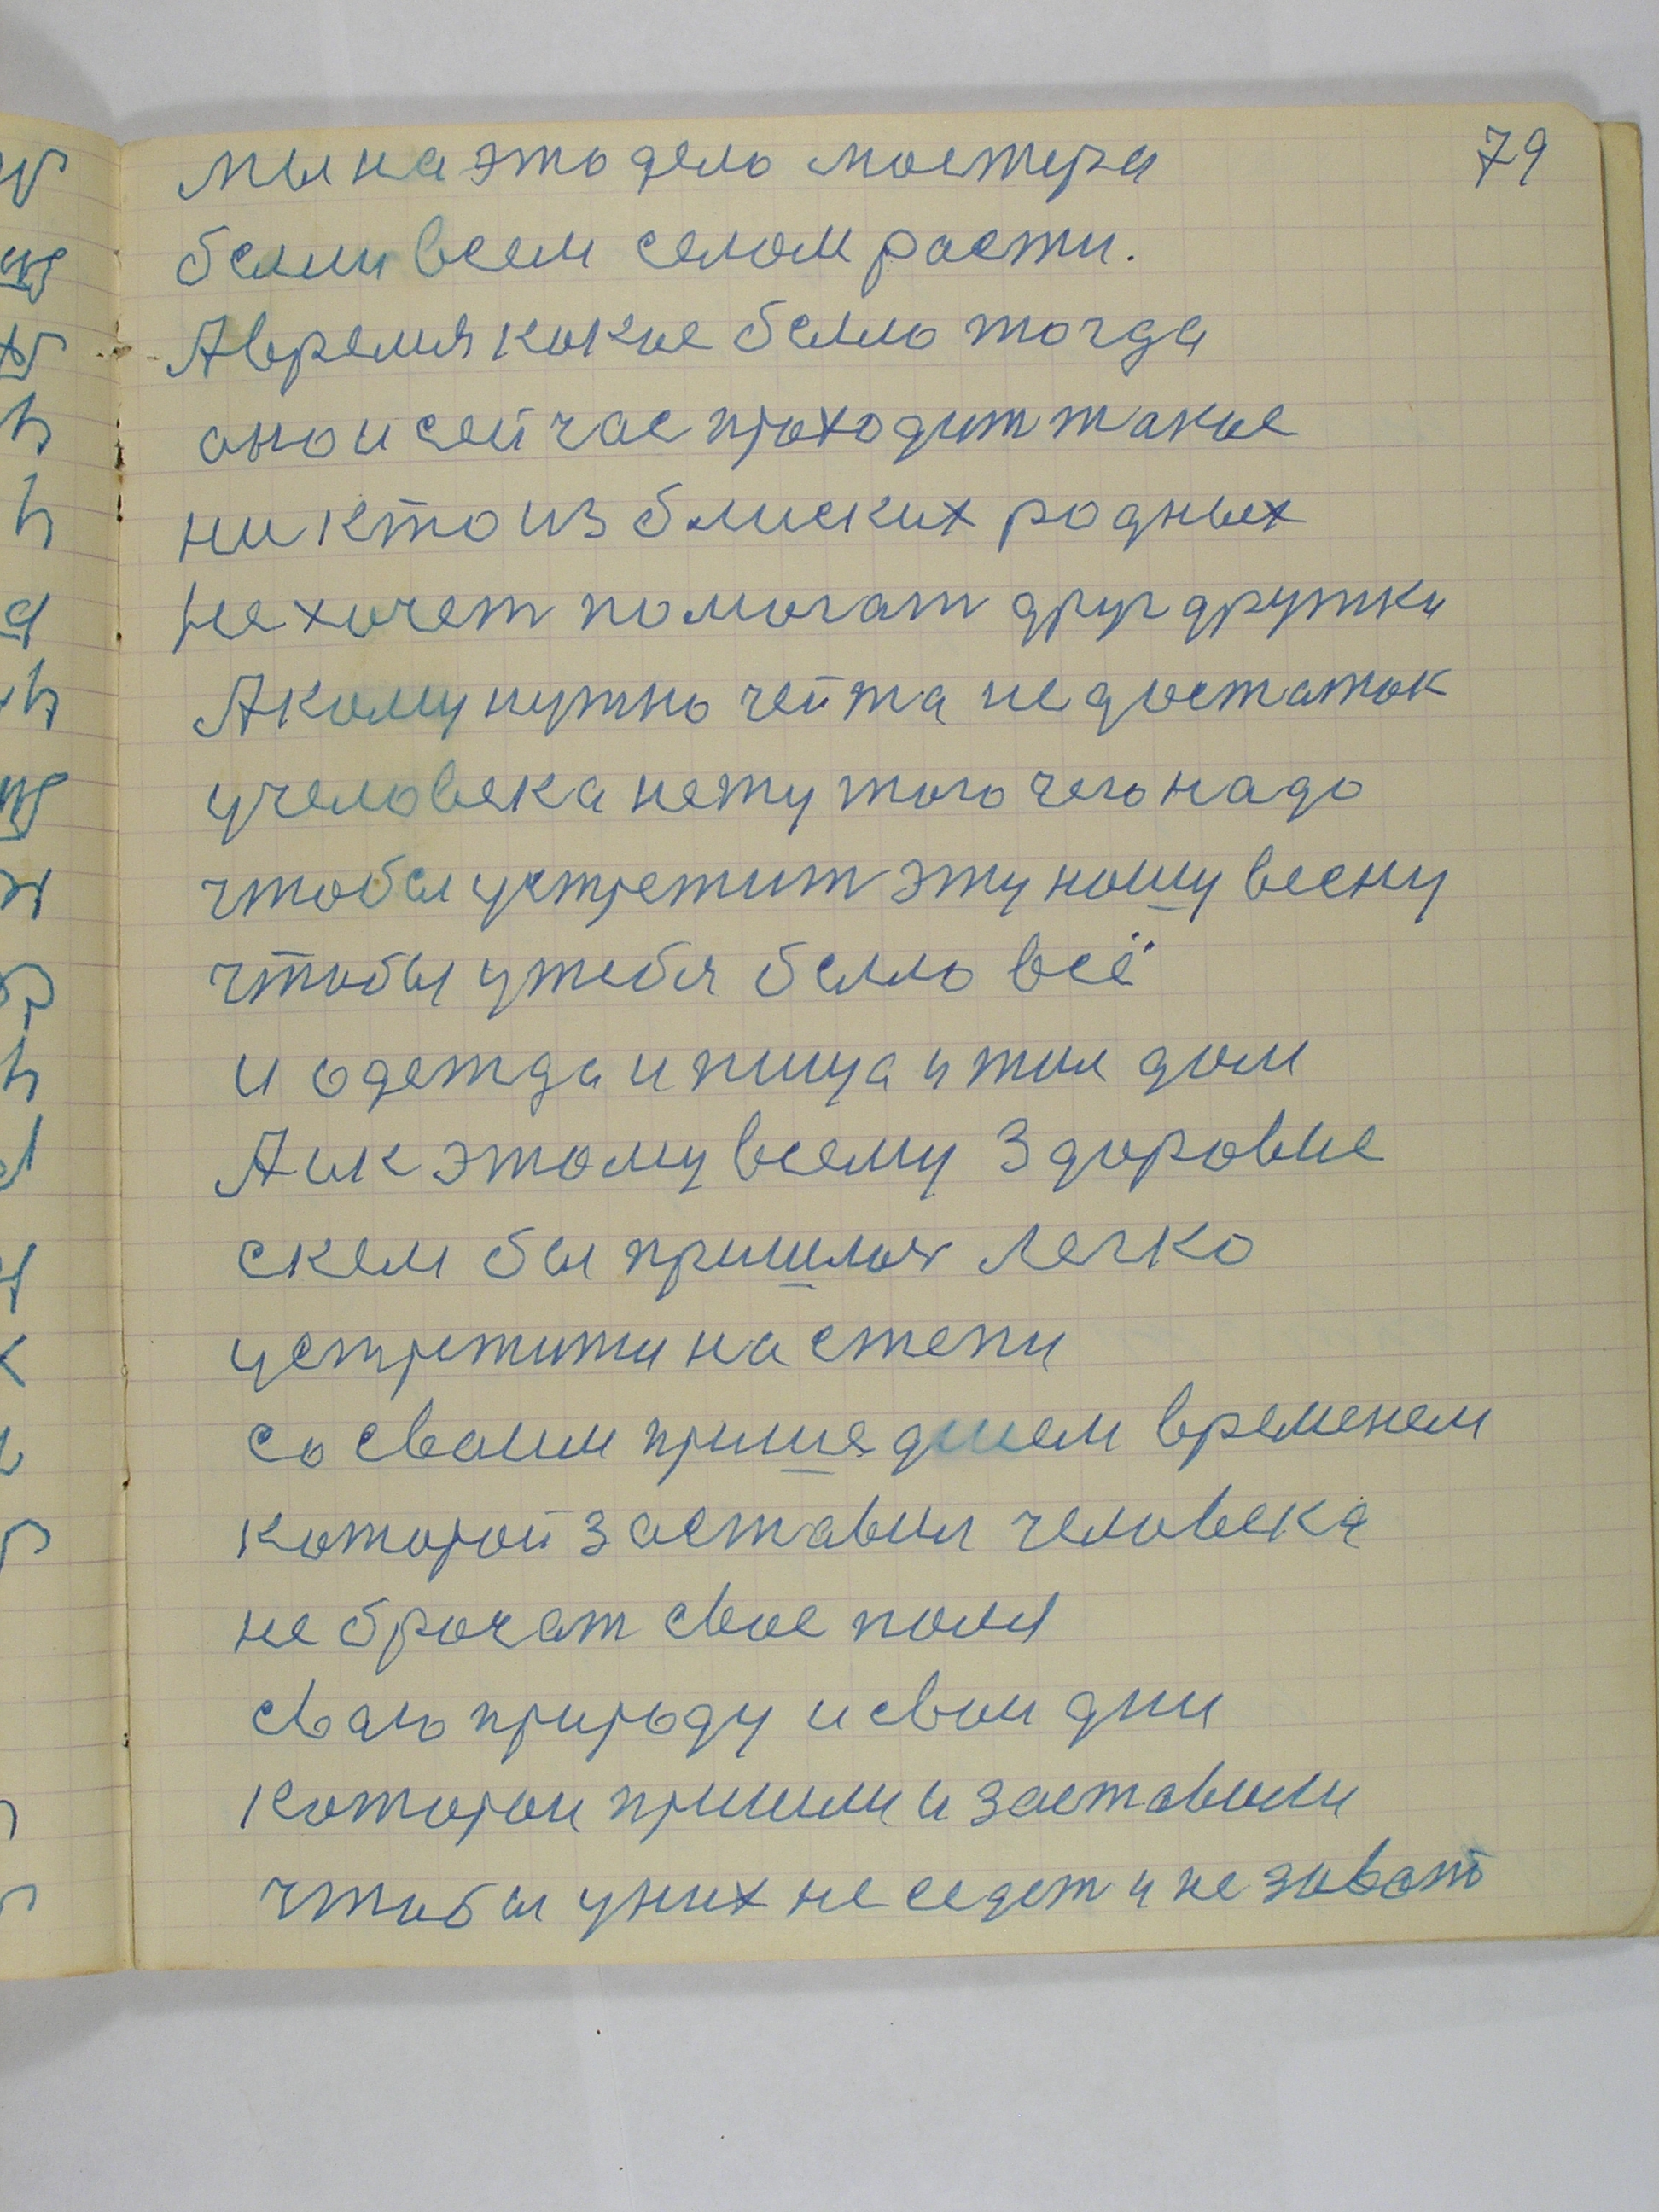 79
мы на это дело мостера
были всем селом расти.
А время какое было тогда
оно и сейчас проходит такое
ни кто из блиских родных
не хочет помогат друг дружки
А кому нужно чейта недостаток
у человека нету того чего надо
чтобы устретит эту нашу весну
чтобы у тебя было всё
и одежда и пища и жил дом
А и к этому всему Здоровие
с кем бы пришлося легко
устретити на степи
со своим пришедшем временем
которой заставил человека
не брочат свое поля
сваю природу и свои дни
которои пришли и заставили
чтобы у них не седет и не зиват